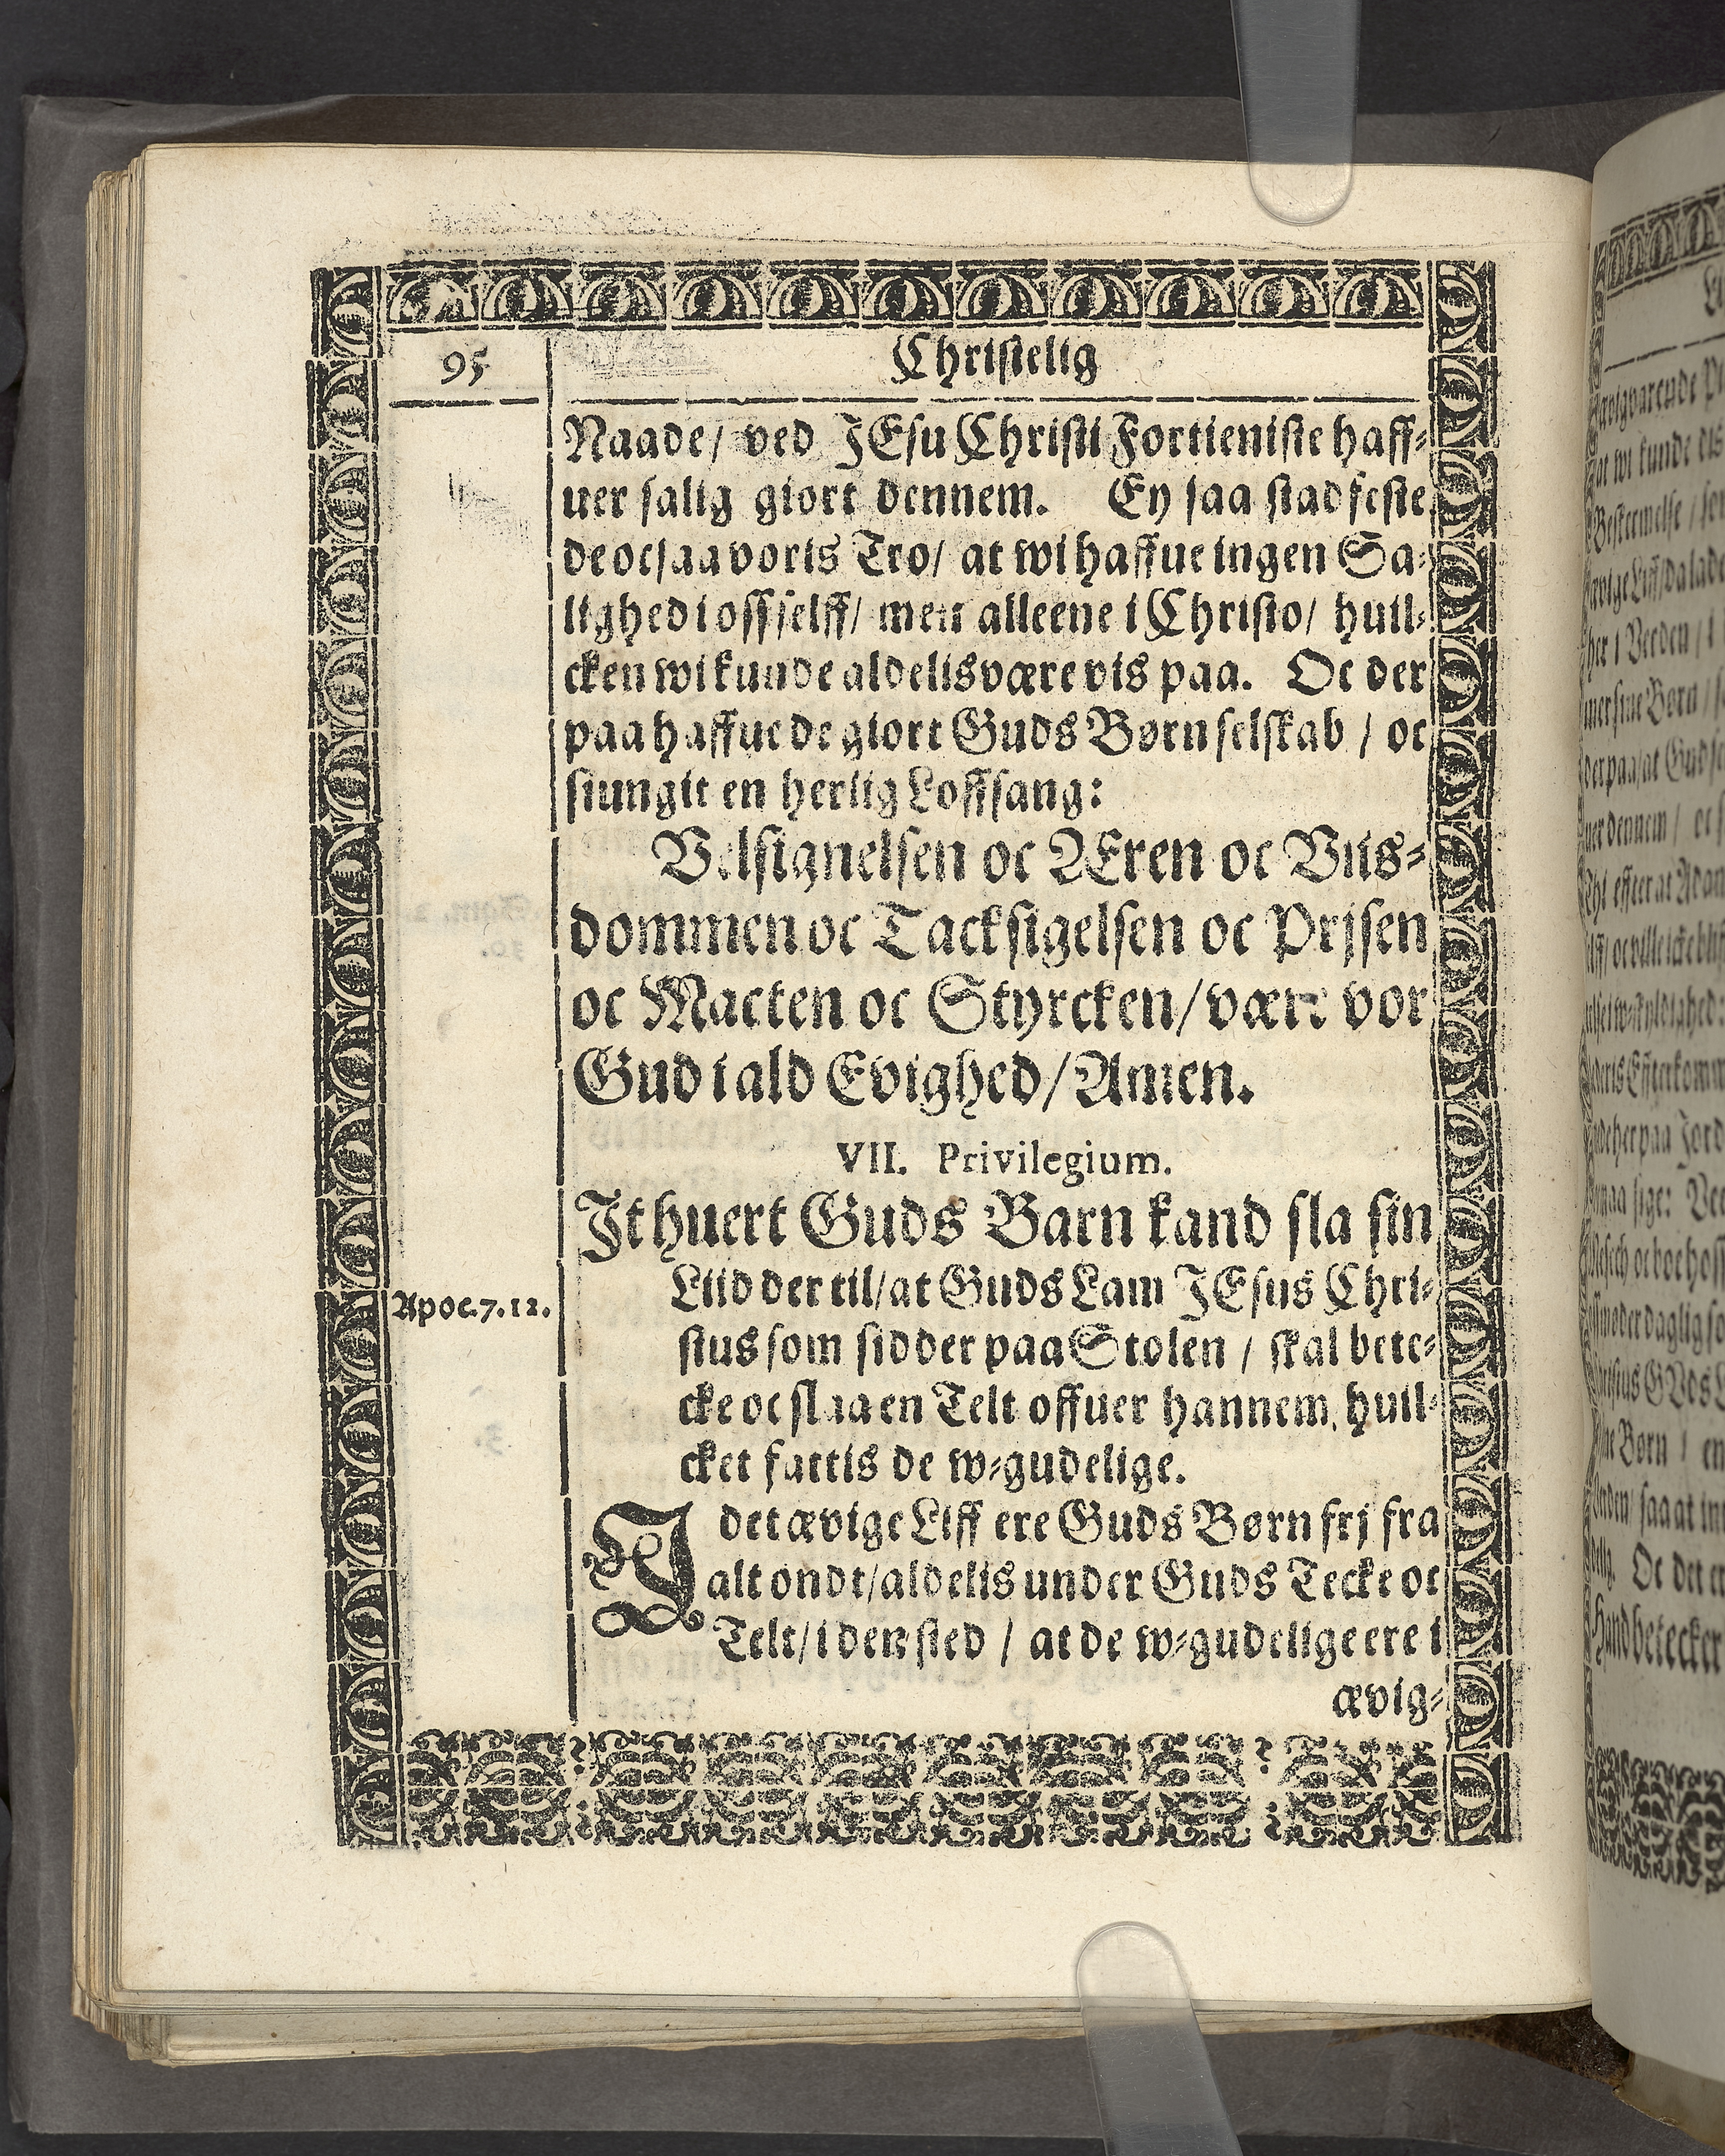 95
Christelig
Naade/ ved JEsu Christi Fortieniste haff⸗
uer salig giort dennem. Ey saa stadfeste
de ocsaa voris Tro/ at wi haffue ingen Sa⸗
lighed i oss selff/ men alleene i Christo/ huil⸗
cken wi kunde aldelis være vis paa. Oc der
paa haffue de giort Guds Børn selskab / oc
siungit en herlig Loffsang:
Velsignelsen oc Æren oc Viis⸗
dommen oc Tacksigelsen oc Prjsen
oc Macten oc Styrcken/ være vor
Gud i ald Evighed/ Amen.
VII. Privilegium.
It huert Guds Barn kand sla sin
Apoc. 7. 12.
Liid der til/ at Guds Lam JEsus Chri⸗
stus som sidder paa Stolen / skal bete⸗
cke oc slaa en Telt offuer hannem, huil⸗
cket fattis de w⸗gudelige.
I det ævige Liff ere Guds Børn frj fra
alt ondt/ aldelis under Guds Tecke oc
Telt/ i den sted / at de w⸗gudelige ere i
ævig⸗